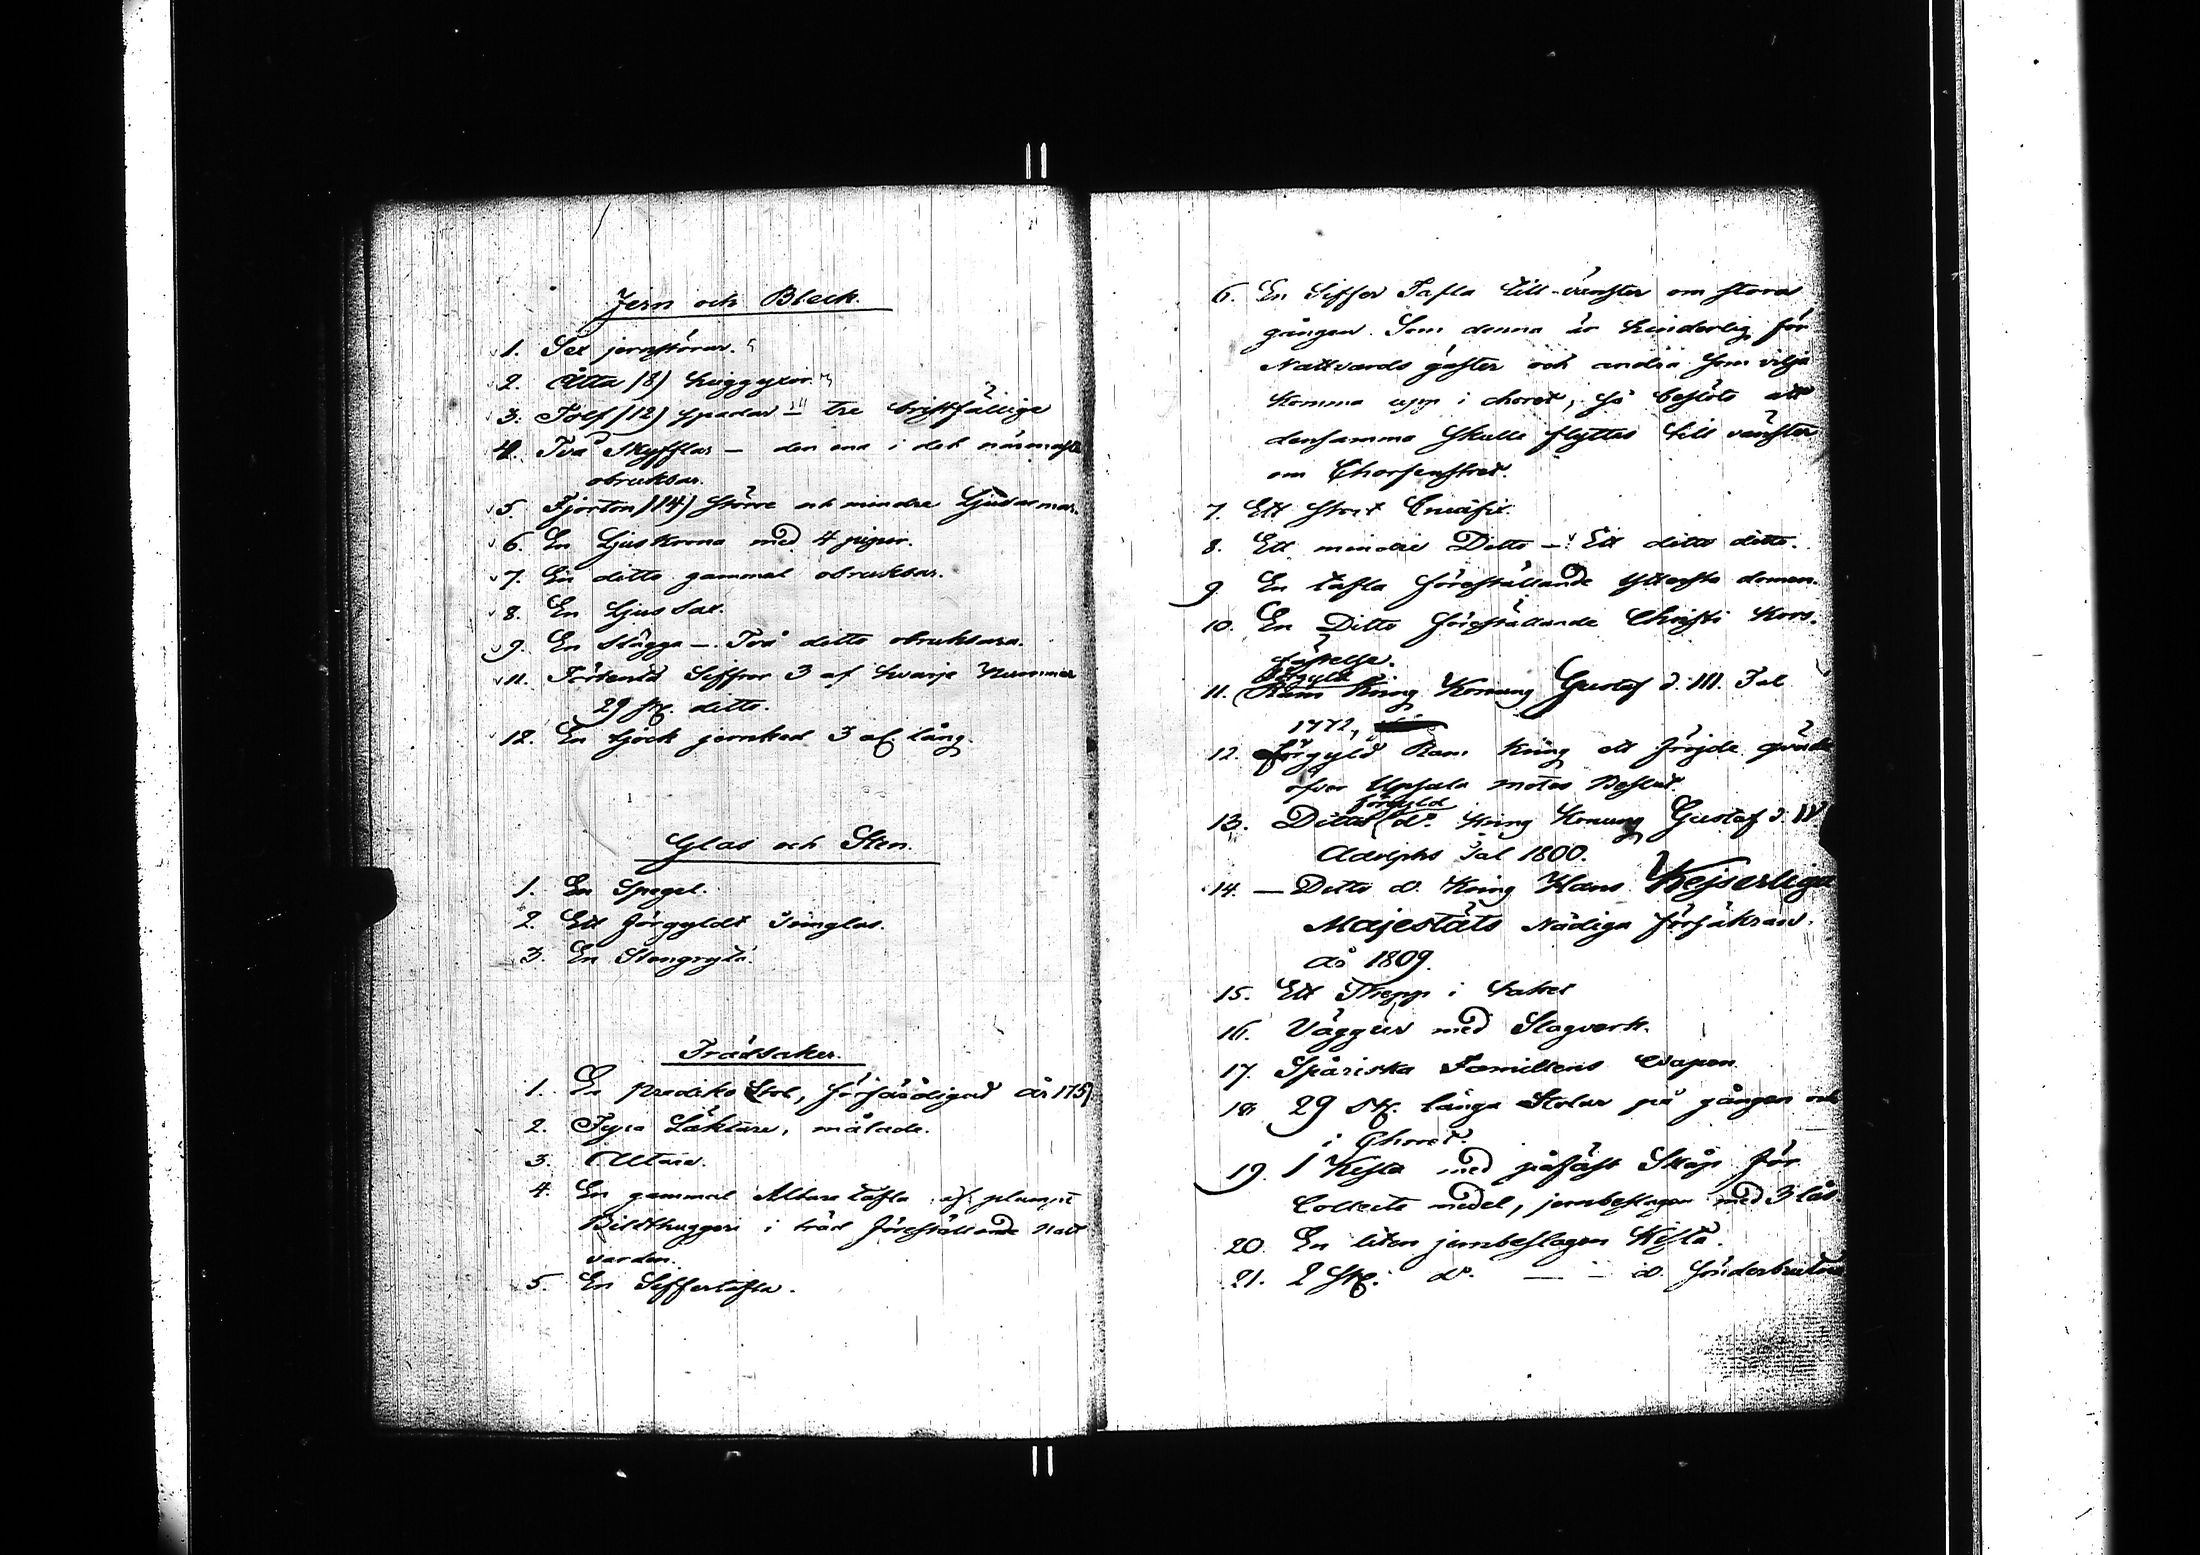 Jern och Bleck.
1. Sex jernstörar.
2. Åtta (8) huggyxor
3. Tolf (12) spadar – tre bristfällige
4. Två Skyfflar – den ena i det närmaste
obrukbar.
5. Fjorton (14) större och mindre Ljusarmar.
6. En Ljuskrona med 4 pipor.
7. En ditto gammal obrukbar.
8. En Ljus Sax.
9. En Slägga – Två ditto obrukbara.
11. Förtenta Siffror 3 af hvarje Nummer
29 st. ditto.
12. En tjock jernked 3 al. lång.
Glas och Sten.
1. En Spegel.
2. Ett förgyldt Timglas.
3. En Stengryta.
Trädsaker.
1. En Prediko Stol, förfärdigad År 1757
2. Fyra Läktare, målade.
3. Altare.
4. En gammal Altare tafla af plumpt
Bildthuggeri i träd föreställande Natt
varden.
5. En Siffertafla.
6. En Siffer Tafla till vänster om stora
gången. Som denna är hinderlig för
Nattvards gäster och andra som vilja
komma upp i choret, så beslöts att
densamma skulle flyttas till vänster
om Chorfenstret.
7. Ett stort Crucifix.
8. Ett mindre Ditto – Ett ditto ditto.
9. En tafla föreställande Yttersta domen.
10. En Ditto föreställande Christi Kors-
fästelse.
förgyld
11. Ram kring Konung Gustaf d. III. Tal
1772,
12. förgyld Ram kring ett fröjde qväde
öfver Upsala mötes Beslut.
förgyld
13. Ditto do kring Konung Gustaf d. IV
Adolphs Tal 1800.
14. – Ditto do kring Hans Kejserliga
Majestäts Nådiga försäkran
År 1809.
15. Ett Skepp i taket
16. Väggur med Slagverk.
17. Spåriska Familiens Wapen.
18. 29 st. långa Stolar på gången och
i Choret.
19. 1 Kista med påfäst Skåp för
Collecte medel, jernbeslagen med 3 lås
20. En liten jernbeslagen Kista.
21. 2 st. do – – do sönderbrutna